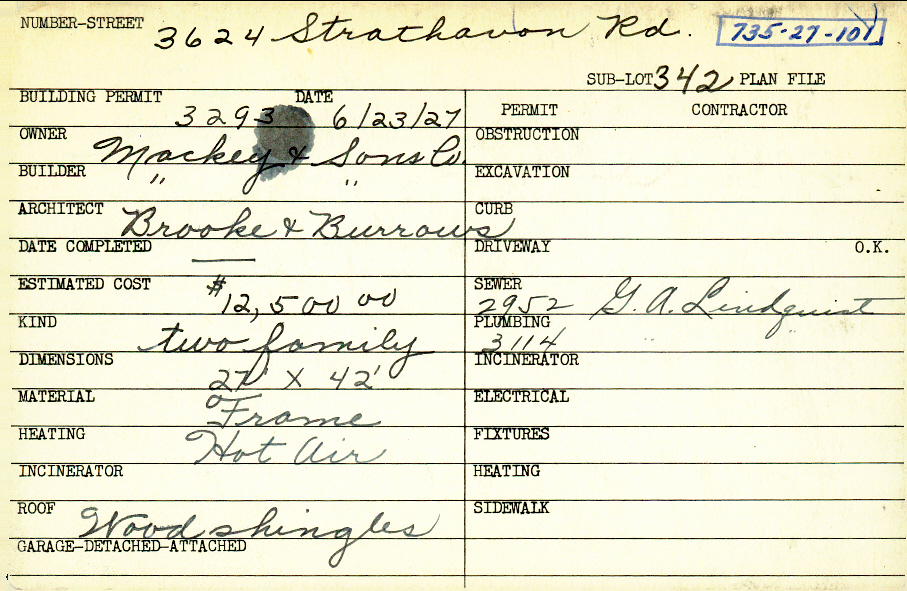 NUMBER-STREET 3624 Strathavon Rd. 735-27-101
SUB-LOT 342 PLAN FILE
BUILDING PERMIT 3293 DATE 6/23/27
PERMIT CONTRACTOR
OWNER Mackey & Sons Co.
OBSTRUCTION
BUILDER " "
EXCAVATION
ARCHITECT Brooke & Burrows
CURB
DATE COMPLETED —
DRIVEWAY O.K.
ESTIMATED COST $12,500 00
SEWER 2952 G. A. Lindquist
KIND two family
PLUMBING 3114
DIMENSIONS 27' X 42'
INCINERATOR
MATERIAL Frame
ELECTRICAL
HEATING Hot Air
FIXTURES
INCINERATOR
HEATING
ROOF Wood shingles
SIDEWALK
GARAGE-DETACHED-ATTACHED